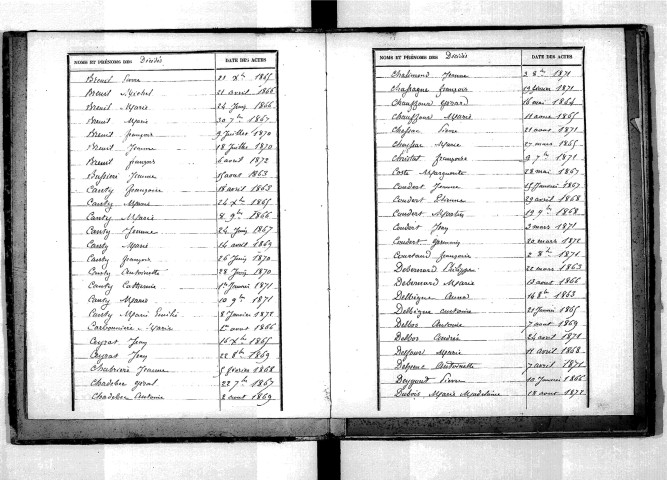 NOMS ET PRÉNOMS DES Décédés DATE DES ACTES
Breuil Pierre 21 Xbre 1865
Breuil Michel 21 avril 1866
Breuil Marie 24 Juin 1866
Breuil Marie 30 7bre 1867
Breuil françois 9 Juillet 1870
Breuil Jeanne 18 Juillet 1870
Breuil françois 6 aout 1872
Jeanne aout 1863
Canty françoise 18 avril 1863
Canty 24 Xbre 1865
Canty Marie 8 9bre 1866
Canty Jeanne 24 Juin 1867
Canty Marie 14 avril 1869
Canty françois 26 Juin 1870
Canty Antoinette 28 Juin 1870
Canty Catherine 1er Janvier 1871
Canty Marie 10 9bre 1871
Canty Marie 8 Janvier 1872
Carbonnière Marie aout 1866
Ceyrat Jean 16 Xbre 1865
Ceyrat Jean 22 8bre 1869
Chabrerie Jeanne 5 février 1868
Chadebec Géral 22 7bre 1867
Chadebec Antoine 2 aout 1869
NOMS ET PRÉNOMS DES Décédés DATE DES ACTES
Jeanne 3 8bre 1871
françois février 1871
Chauzzoux Gérard 16 mai 1864
Chauzzoux Marie 11 aout 1865
Pierre 21 aout 1871
Marie 27 mars 1865
françoise 3 7bre 1871
Coste Marguerite 28 mai 1867
Coudert Jeanne Janvier 1867
Coudert Etienne 29 avril 1868
Coudert 19 9bre 1868
Coudert Jean 3 mars 1871
Coudert Germain 20 mars 1872
Coustand françoise 2 8bre 1871
Debernard Philippe 22 mars 1863
Debernard Marie 13 aout 1866
Delbigue Anne 14 8bre 1863
Delbigue antoine 21 Janvier 1865
Delbos Antoine 7 aout 1869
Delbos André 24 avril 1871
Marie 11 avril 1868
Antoinette 7 avril 1871
Pierre 10 Janvier 1866
Dubois Marie Madelaine 18 aout 1872